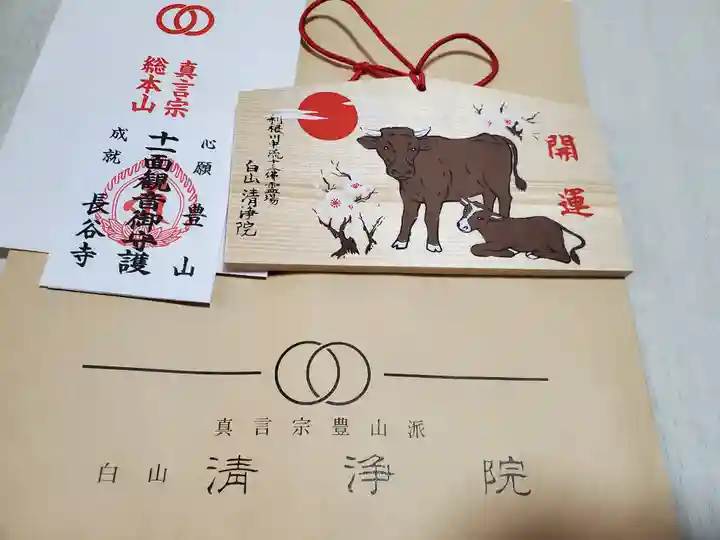 真言宗
総本山
心願
成就
十一面観音御守護
豊山
長谷寺
開運
利根川中流十三佛霊場
白山 清浄院
真言宗豊山派
白山 清浄院